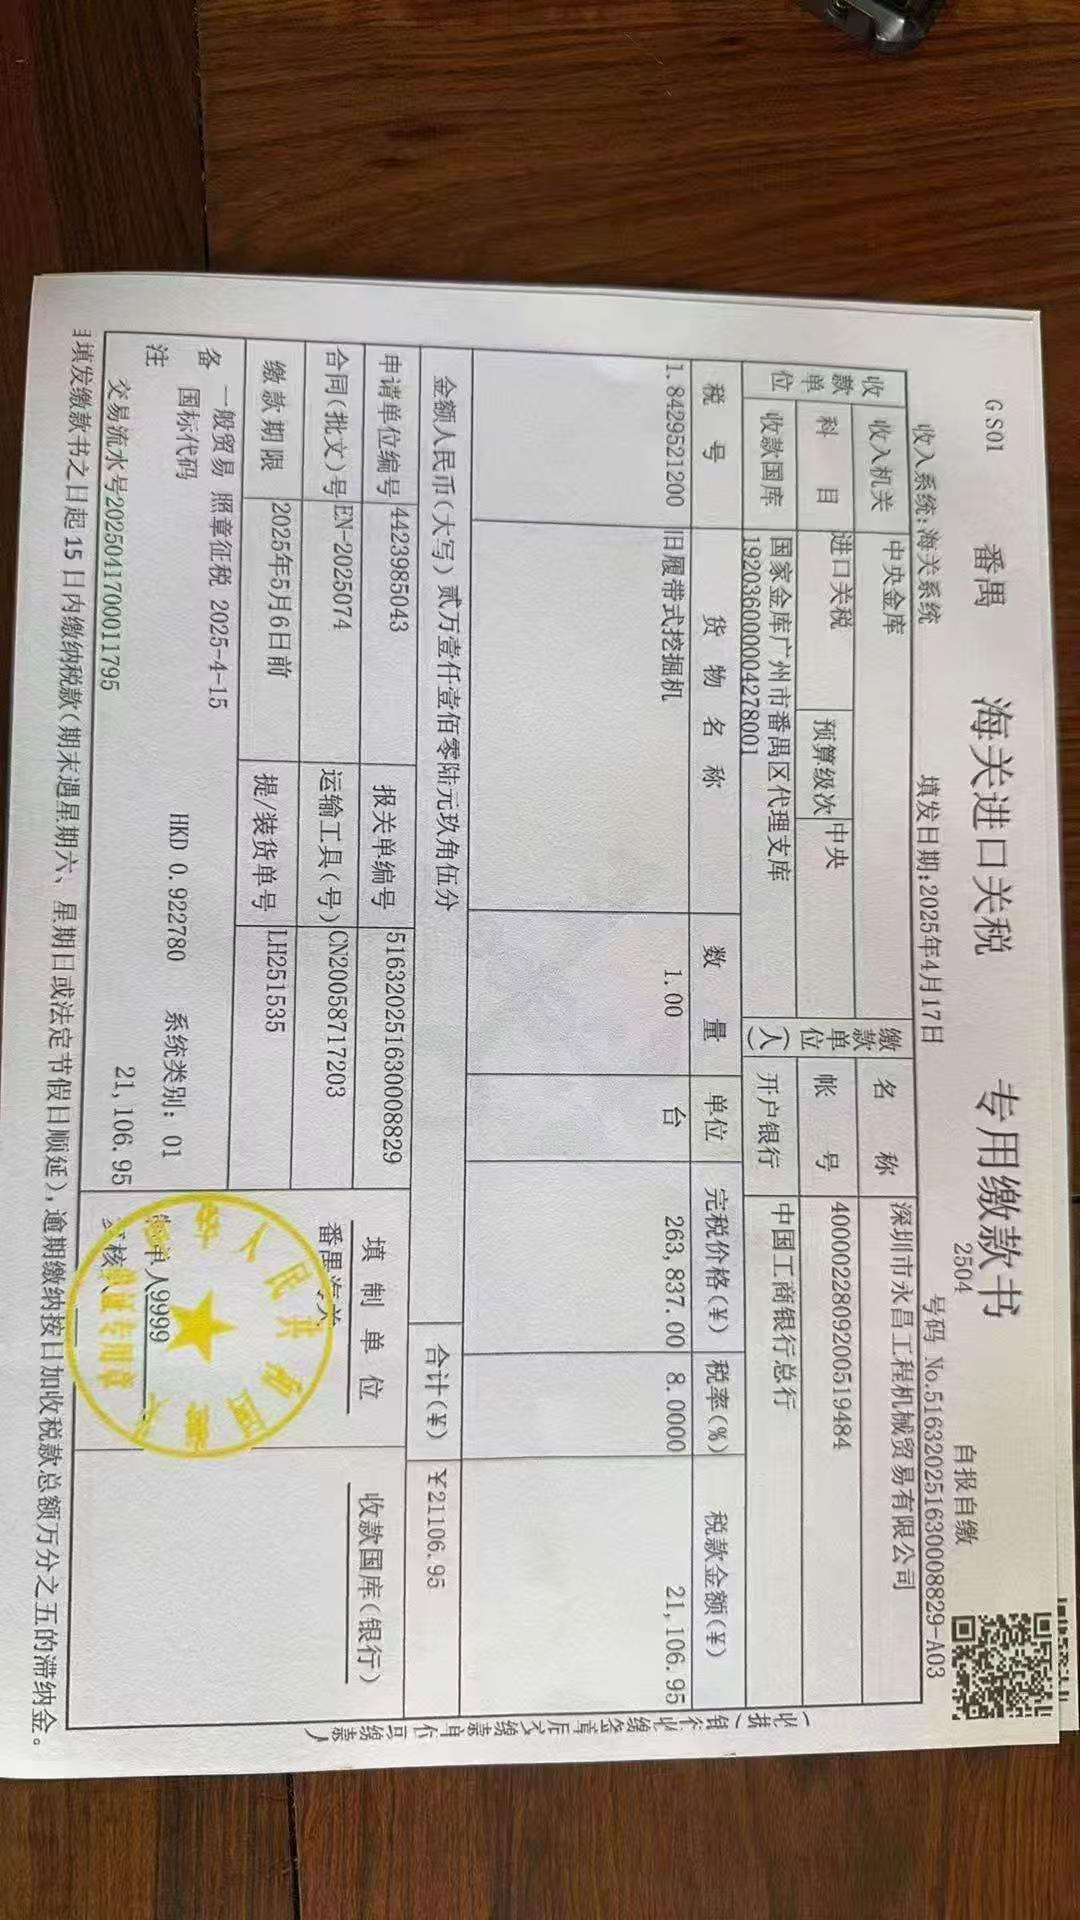 GS01 番禺 海关进口关税 专用缴款书
2504 自报自缴
收入系统:海关系统 填发日期:2025年4月17日 号码 No.516320251630008829-A03
收款单位 收入机关 中央金库 缴款单位(人) 名 称 深圳市永昌工程机械贸易有限公司
科 目 进口关税 预算级次 中央 帐 号 4000022809200519484
收款国库 国家金库广州市番禺区代理支库 开户银行 中国工商银行总行
192036000004278001
税 号 货 物 名 称 数 量 单位 完税价格(¥) 税率(%) 税款金额(¥)
1.8429521200 旧履带式挖掘机 1.00 台 263,837.00 8.0000 21,106.95
金额人民币(大写) 贰万壹仟壹佰零陆元玖角伍分 合计(¥) ¥21106.95
申请单位编号 4423985043 报关单编号 516320251630008829 填 制 单 位 收款国库(银行)
合同(批文)号 EN-2025074 运输工具(号) CN20058717203 番禺海关
缴 款 期 限 2025年5月6日前 提/装货单号 LH251535
备注 一般贸易 照章征税 2025-4-15
国标代码 HKD 0.922780 系统类别: 01
制单人9999
交易流水号2025041700011795 21,106.95
中华人民共和国
证专用章
填发缴款书之日起 15 日内缴纳税款(期末遇星期六、星期日或法定节假日顺延),逾期缴纳按日加收税款总额万分之五的滞纳金。